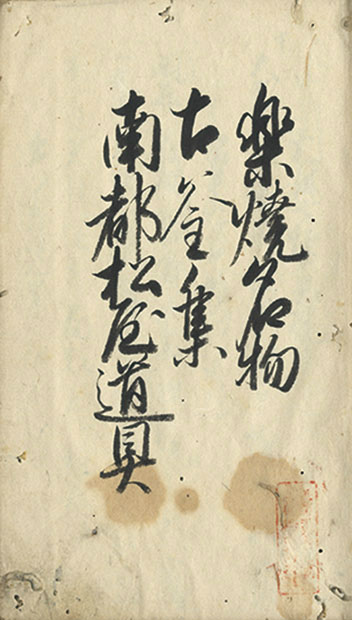 楽焼名物
古釜集
南都松屋道具